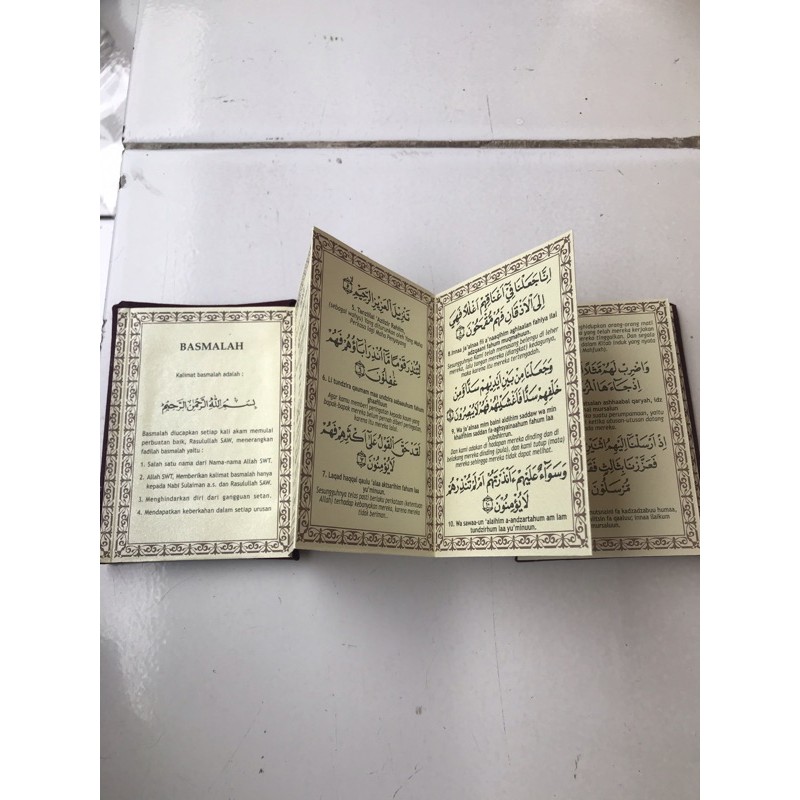 BASMALAH
Kalimat basmalah adalah :
بِسْمِ اللَّهِ الرَّحْمَنِ الرَّحِيمِ
Basmalah diucapkan setiap kali akam memulai
perbuatan baik, Rasulullah SAW, menerangkan
fadilah basmalah yaitu :
1. Salah satu nama dari Nama-nama Allah SWT.
2. Allah SWT, Memberikan kalimat basmalah hanya
kepada Nabi Sulaiman a.s. dan Rasulullah SAW.
3. Menghindarkan diri dari gangguan setan.
4. Mendapatkan keberkahan dalam setiap urusan
تَنْزِيلَ الْعَزِيزِ الرَّحِيمِ
5. Tanziilal 'Aziizir Rahiim.
(sebagai wahyu) Yang diturunkan oleh Yang Maha
Perkasa lagi Maha Penyayang
لِتُنْذِرَ قَوْمًا مَّا أُنْذِرَ آبَاؤُهُمْ فَهُمْ
غَافِلُونَ
6. Li tundzira qauman maa undzira aabaauhum fahum
ghaafiluun
Agar kamu memberi peringatan kepada kaum yang
bapak-bapak mereka belum pernah diberi peringatan,
karena itu mereka lalai.
لَقَدْ حَقَّ الْقَوْلُ عَلَىٰ أَكْثَرِهِمْ فَهُمْ
لَا يُؤْمِنُونَ
7. Laqad haqqal qaulu 'alaa aktsarihim fahum laa
yu'minuun.
Sesungguhnya telas pasti berlaku perkataan (ketentuan
Allah) terhadap kebanyakan mereka, karena mereka
tidak beriman.
إِنَّا جَعَلْنَا فِي أَعْنَاقِهِمْ أَغْلَالًا فَهِيَ
إِلَى الْأَذْقَانِ فَهُمْ مُّقْمَحُونَ
8. Innaa ja'alnaa fii a'naaqihim aghlaalan fahiya ilal
adzqaani fahum muqmahuun.
Sesungguhnya Kami telah memasang belenggu di leher
mereka, lalu tangan mereka (diangkat) kedagunya,
maka karena itu mereka tertengadah.
وَجَعَلْنَا مِنْ بَيْنِ أَيْدِيهِمْ سَدًّا وَمِنْ
خَلْفِهِمْ سَدًّا فَأَغْشَيْنَاهُمْ فَهُمْ لَا يُبْصِرُونَ
9. Wa ja'alnaa mim baini aidihim saddaw wa min
khalfihim saddan fa-aghsyainaahum fahum laa
yubshiruun.
Dan kami adakan di hadapan mereka dinding dan di
belakang mereka dinding (pula), dan kami tutup (mata)
mereka sehingga mereka tidak dapat melihat.
وَسَوَاءٌ عَلَيْهِمْ أَأَنْذَرْتَهُمْ أَمْ لَمْ تُنْذِرْهُمْ
لَا يُؤْمِنُونَ
10. Wa sawaa-un 'alaihim a-andzartahum am lam
tundzirhum laa yu'minuun.
orang-orang mati
yang telah mereka kerjakan
mereka tinggalkan. Dan segala
dalam Kitab Induk yang nyata
وَاضْرِبْ لَهُمْ مَّثَلًا
إِذْ جَاءَهَا
ashhaabal qaryah, idz
mursaluun
suatu perumpamaan, yaitu
datang kepada
mereka.
إِذْ أَرْسَلْنَا إِلَيْهِمُ اثْنَيْنِ
فَعَزَّزْنَا بِثَالِثٍ
مُّرْسَلُونَ
fa kadzdzabuu humaa,
fa qaaluu; innaa ilaikum
mursaluun.